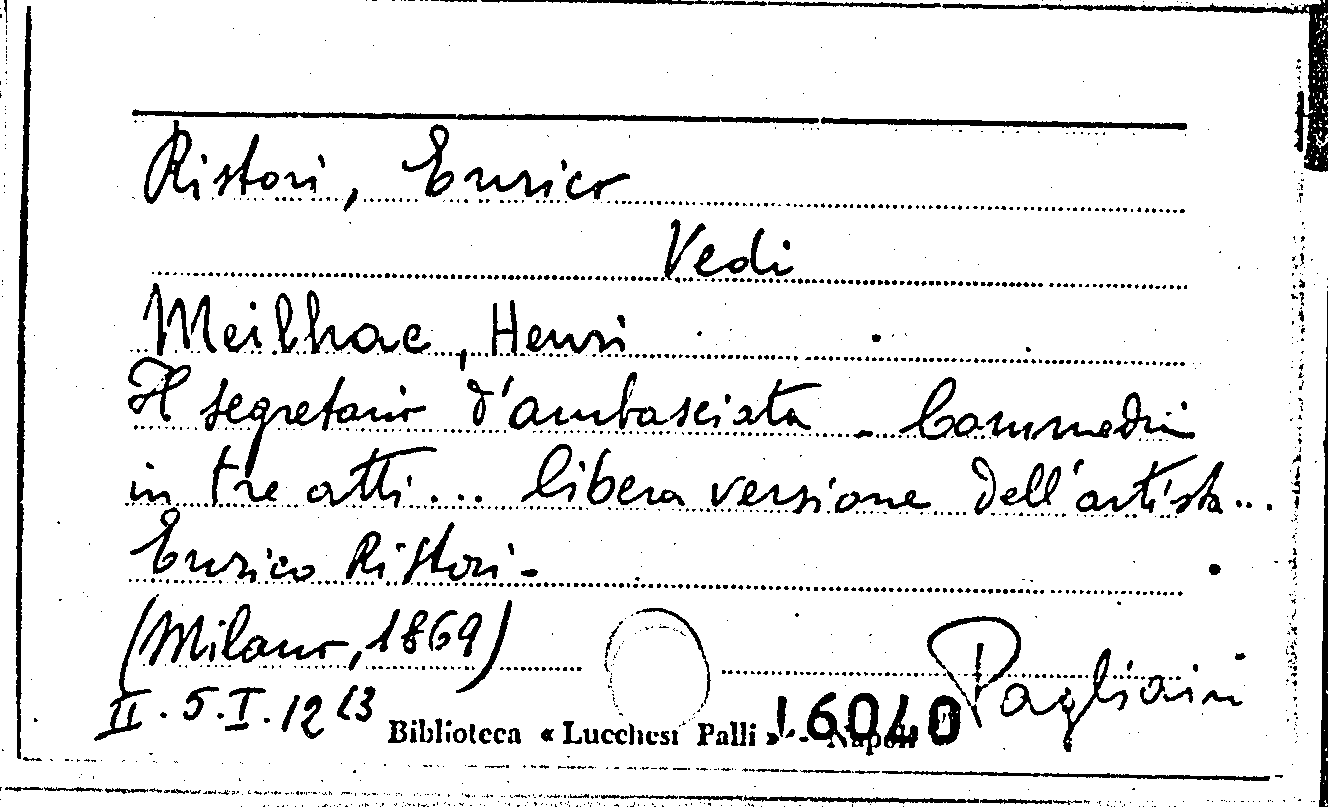 Ristori, Enrico
Vedi
Meilhac, Henri
Il segretario d'ambasciata - Commedia
in tre atti... libera versione dell'artista...
Enrico Ristori -
(Milano, 1869)
Pagliaini
II. 5. I. 12 (3
16040
Biblioteca « Lucchesi Palli » - Napoli